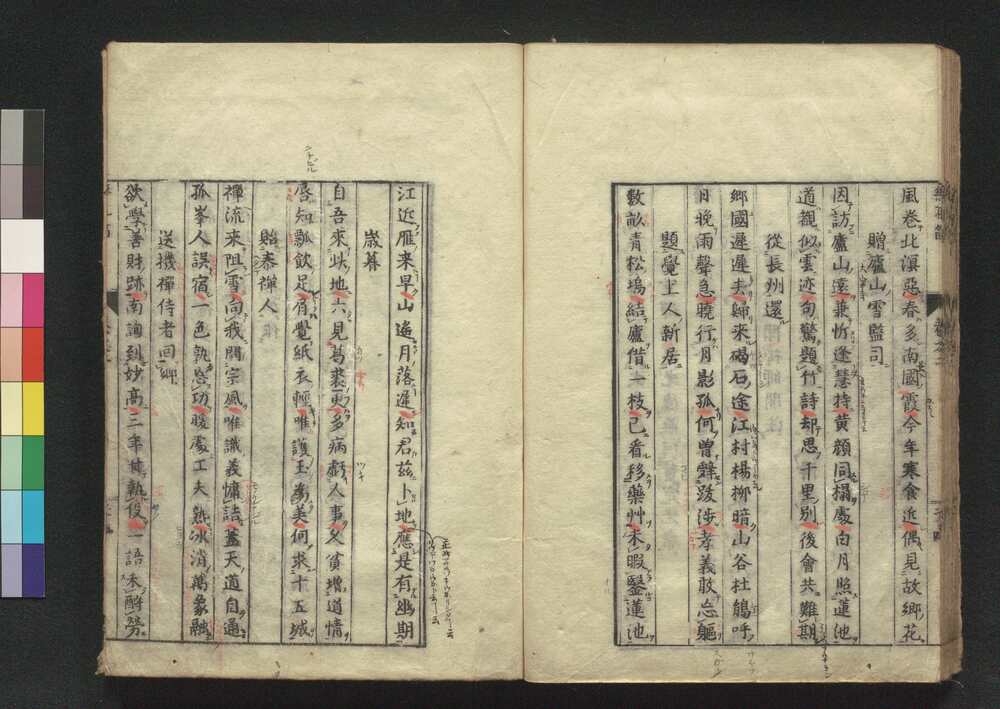 風巻北溟惡春多南國霞今年寒食近偶見故鄕花
贈廬山雪監司
因訪廬山遠兼忻逢慧持黄顔同搨處白月照蓮池
道觀似雲迹句驚題竹詩却思千里別後會共難期
從長州還
鄕國遲遲去歸來碣石途江村楊柳暗山谷杜鵑呼
月晚雨聲急曉行月影孤何曽辭跋涉孝義敢忘軀
題覺上人新居
數畝青松塢結廬借一枝已看移藥艸未暇鑿蓮池
江近雁来早山遙月落遲知君茲卜地應是有幽期
歳暮
自吾來此地六見葛裘更多病虧人事久貧増道情
唇知瓢飲足肩覺紙衣輕唯護玉象美何求十五城
貽泰禪人
禪流来阻雪向我問宗風唯識義慵詰蓋天道自通
孤峯人誤宿一色孰啓功暖處工夫熟冰消萬象融
送機禪侍者回郷
欲學善財跡南詢到妙高三年甘執侍一語未酬勞